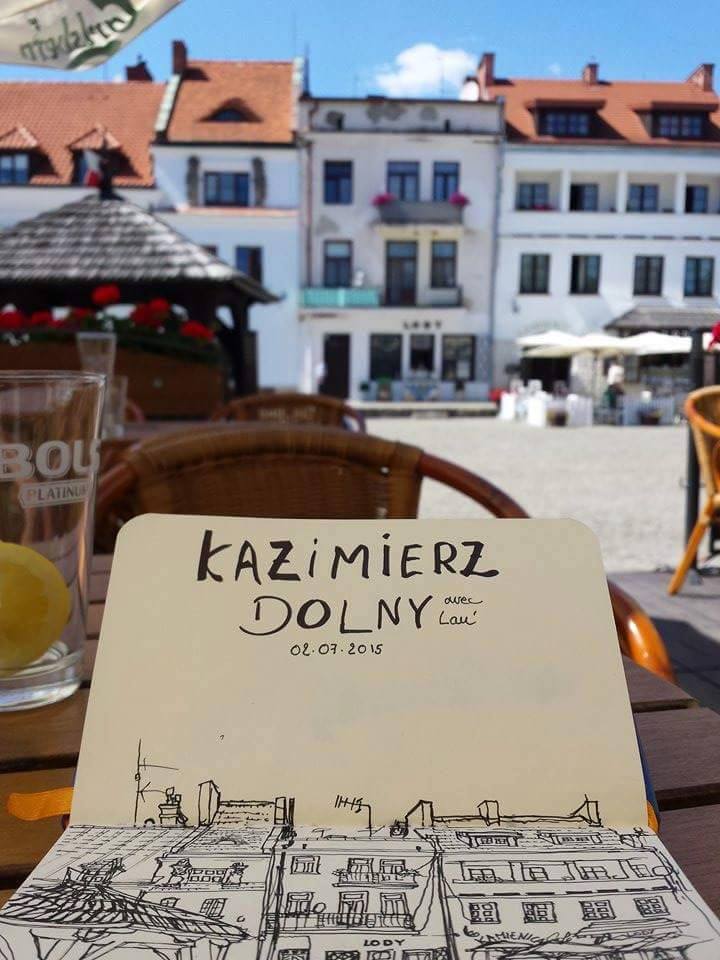 LODY
BOLS
PLATINUM
KAZiMiERZ
DOLNY avec
Lau'
02.07.2015
LODY
KAMIENICA